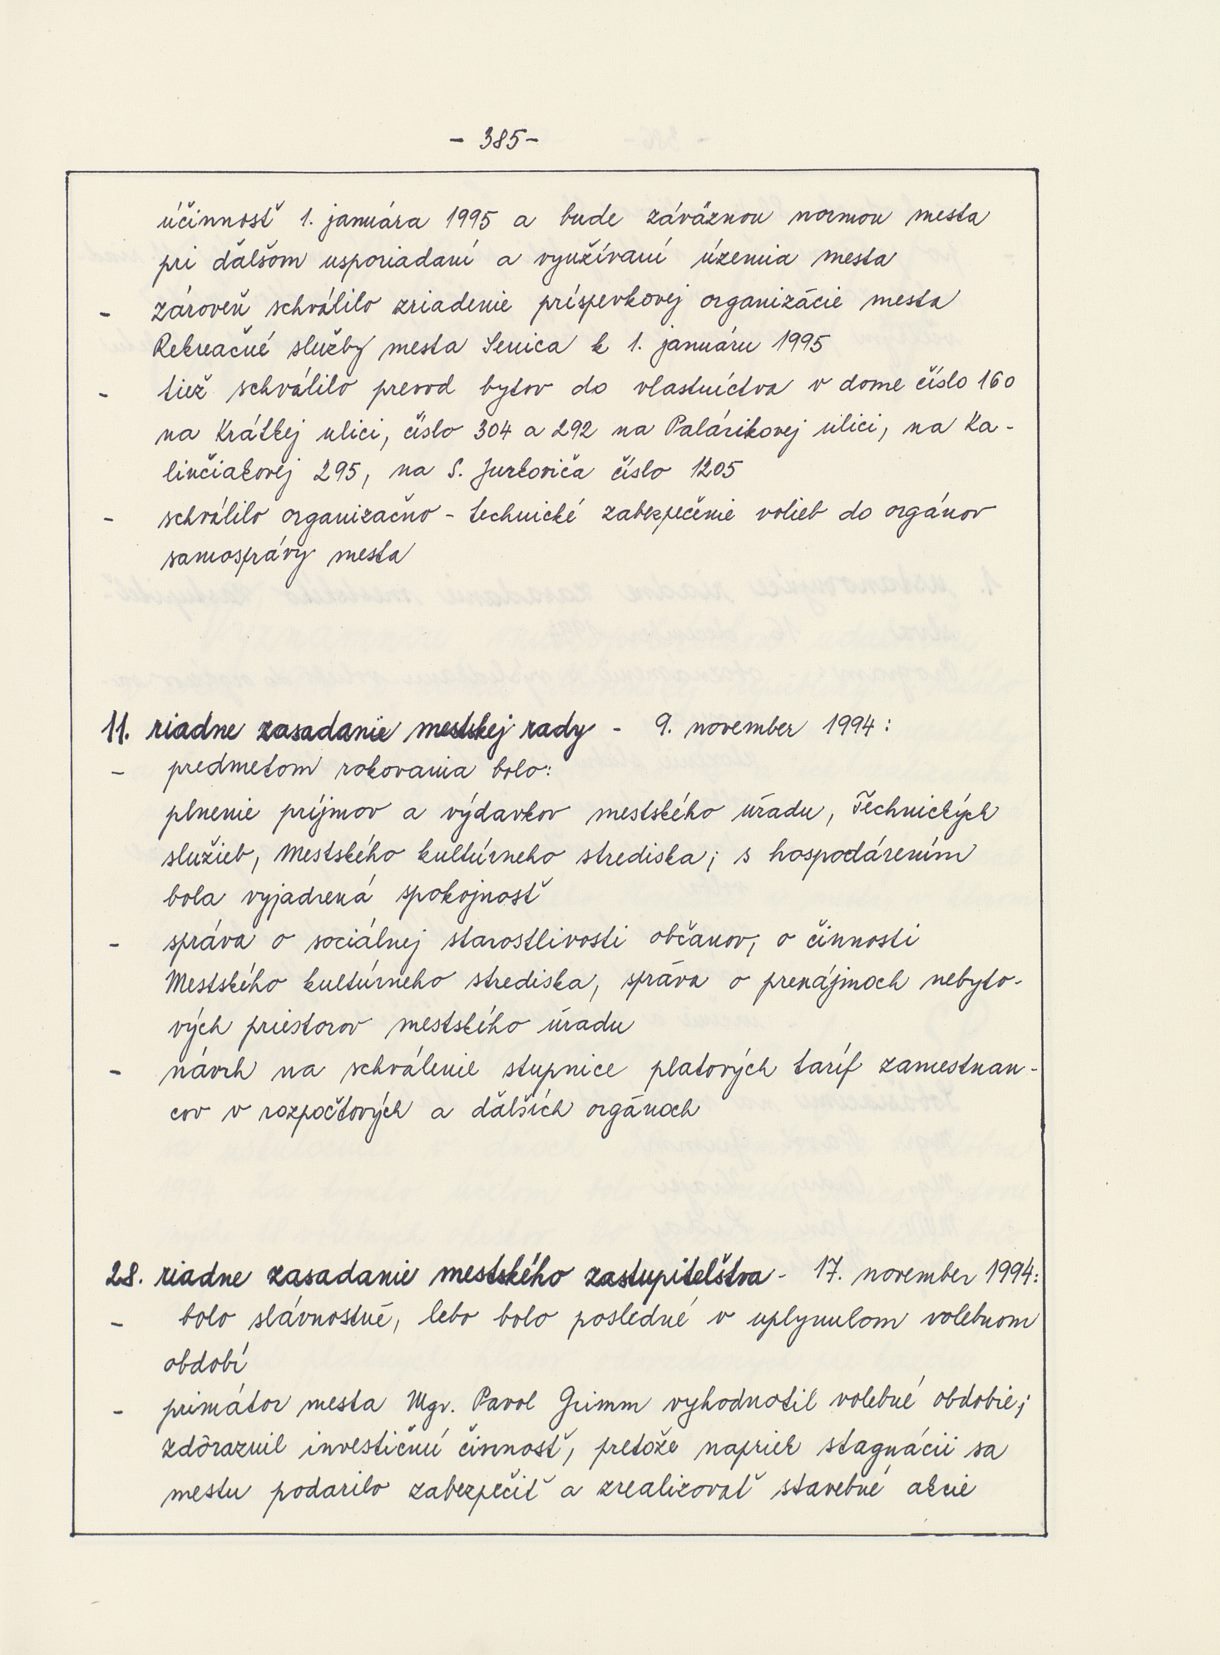 - 385 -
účinnosť 1. januára 1995 a bude záväznou normou mesta
pri ďalšom usporiadaní a využívaní územia mesta
- zároveň schválilo zriadenie príspevkovej organizácie mesta
Rekreačné služby mesta Senica k 1. januáru 1995
- tiež schválilo prevod bytov do vlastníctva v dome číslo 160
na Krátkej ulici, číslo 304 a 292 na Palárikovej ulici, na Ka-
linčiakovej 295, na S. Jurkoviča číslo 1205
- schválilo organizačno - technické zabezpečenie volieb do orgánov
samosprávy mesta
11. riadne zasadanie mestskej rady - 9. november 1994:
- predmetom rokovania bolo:
plnenie príjmov a výdavkov mestského úradu, Technických
služieb, Mestského kultúrneho strediska; s hospodárením
bola vyjadrená spokojnosť
- správa o sociálnej starostlivosti občanov, o činnosti
Mestského kultúrneho strediska, správa o prenájmoch nebyto-
vých priestorov mestského úradu
- návrh na schválenie stupnice platových taríf zamestnan-
cov v rozpočtových a ďalších orgánoch
28. riadne zasadanie mestského zastupiteľstva - 17. november 1994:
- bolo slávnostné, lebo bolo posledné v uplynulom volebnom
období
- primátor mesta Mgr. Pavol Grimm vyhodnotil volebné obdobie;
zdôraznil investičnú činnosť, pretože napriek stagnácii sa
mestu podarilo zabezpečiť a zrealizovať stavebné akcie